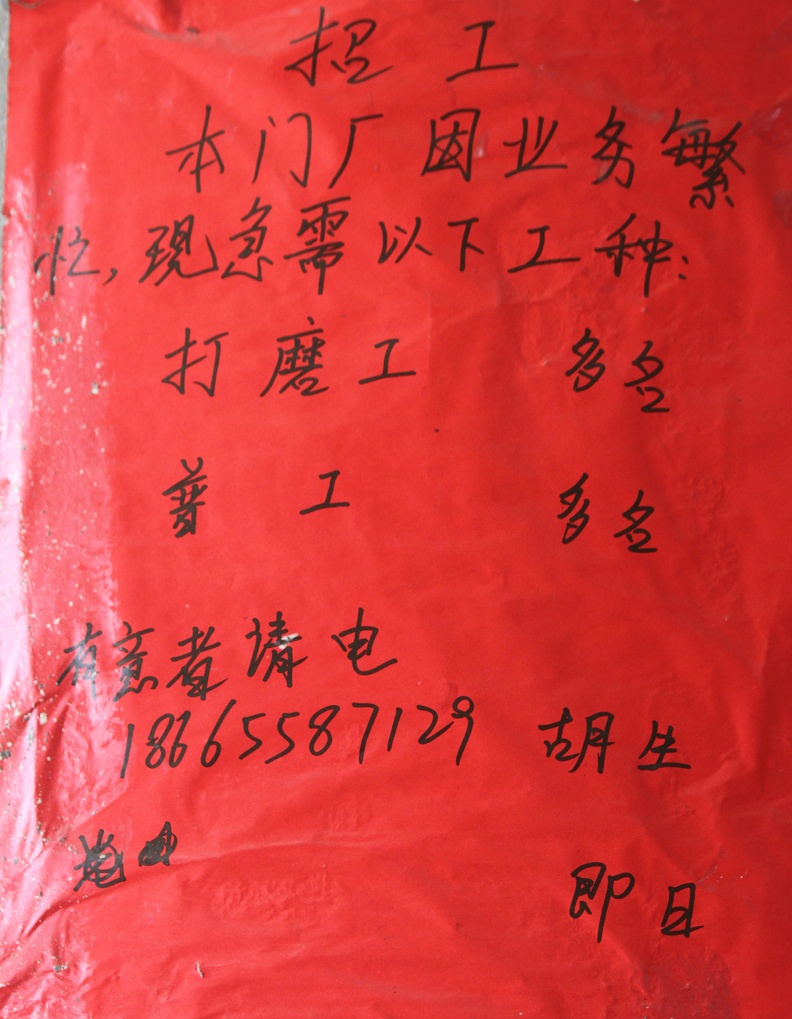 招工
本门厂因业务繁
忙,现急需以下工种:
打磨工 多名
普工 多名
有意者请电
18665587129 胡生
即日